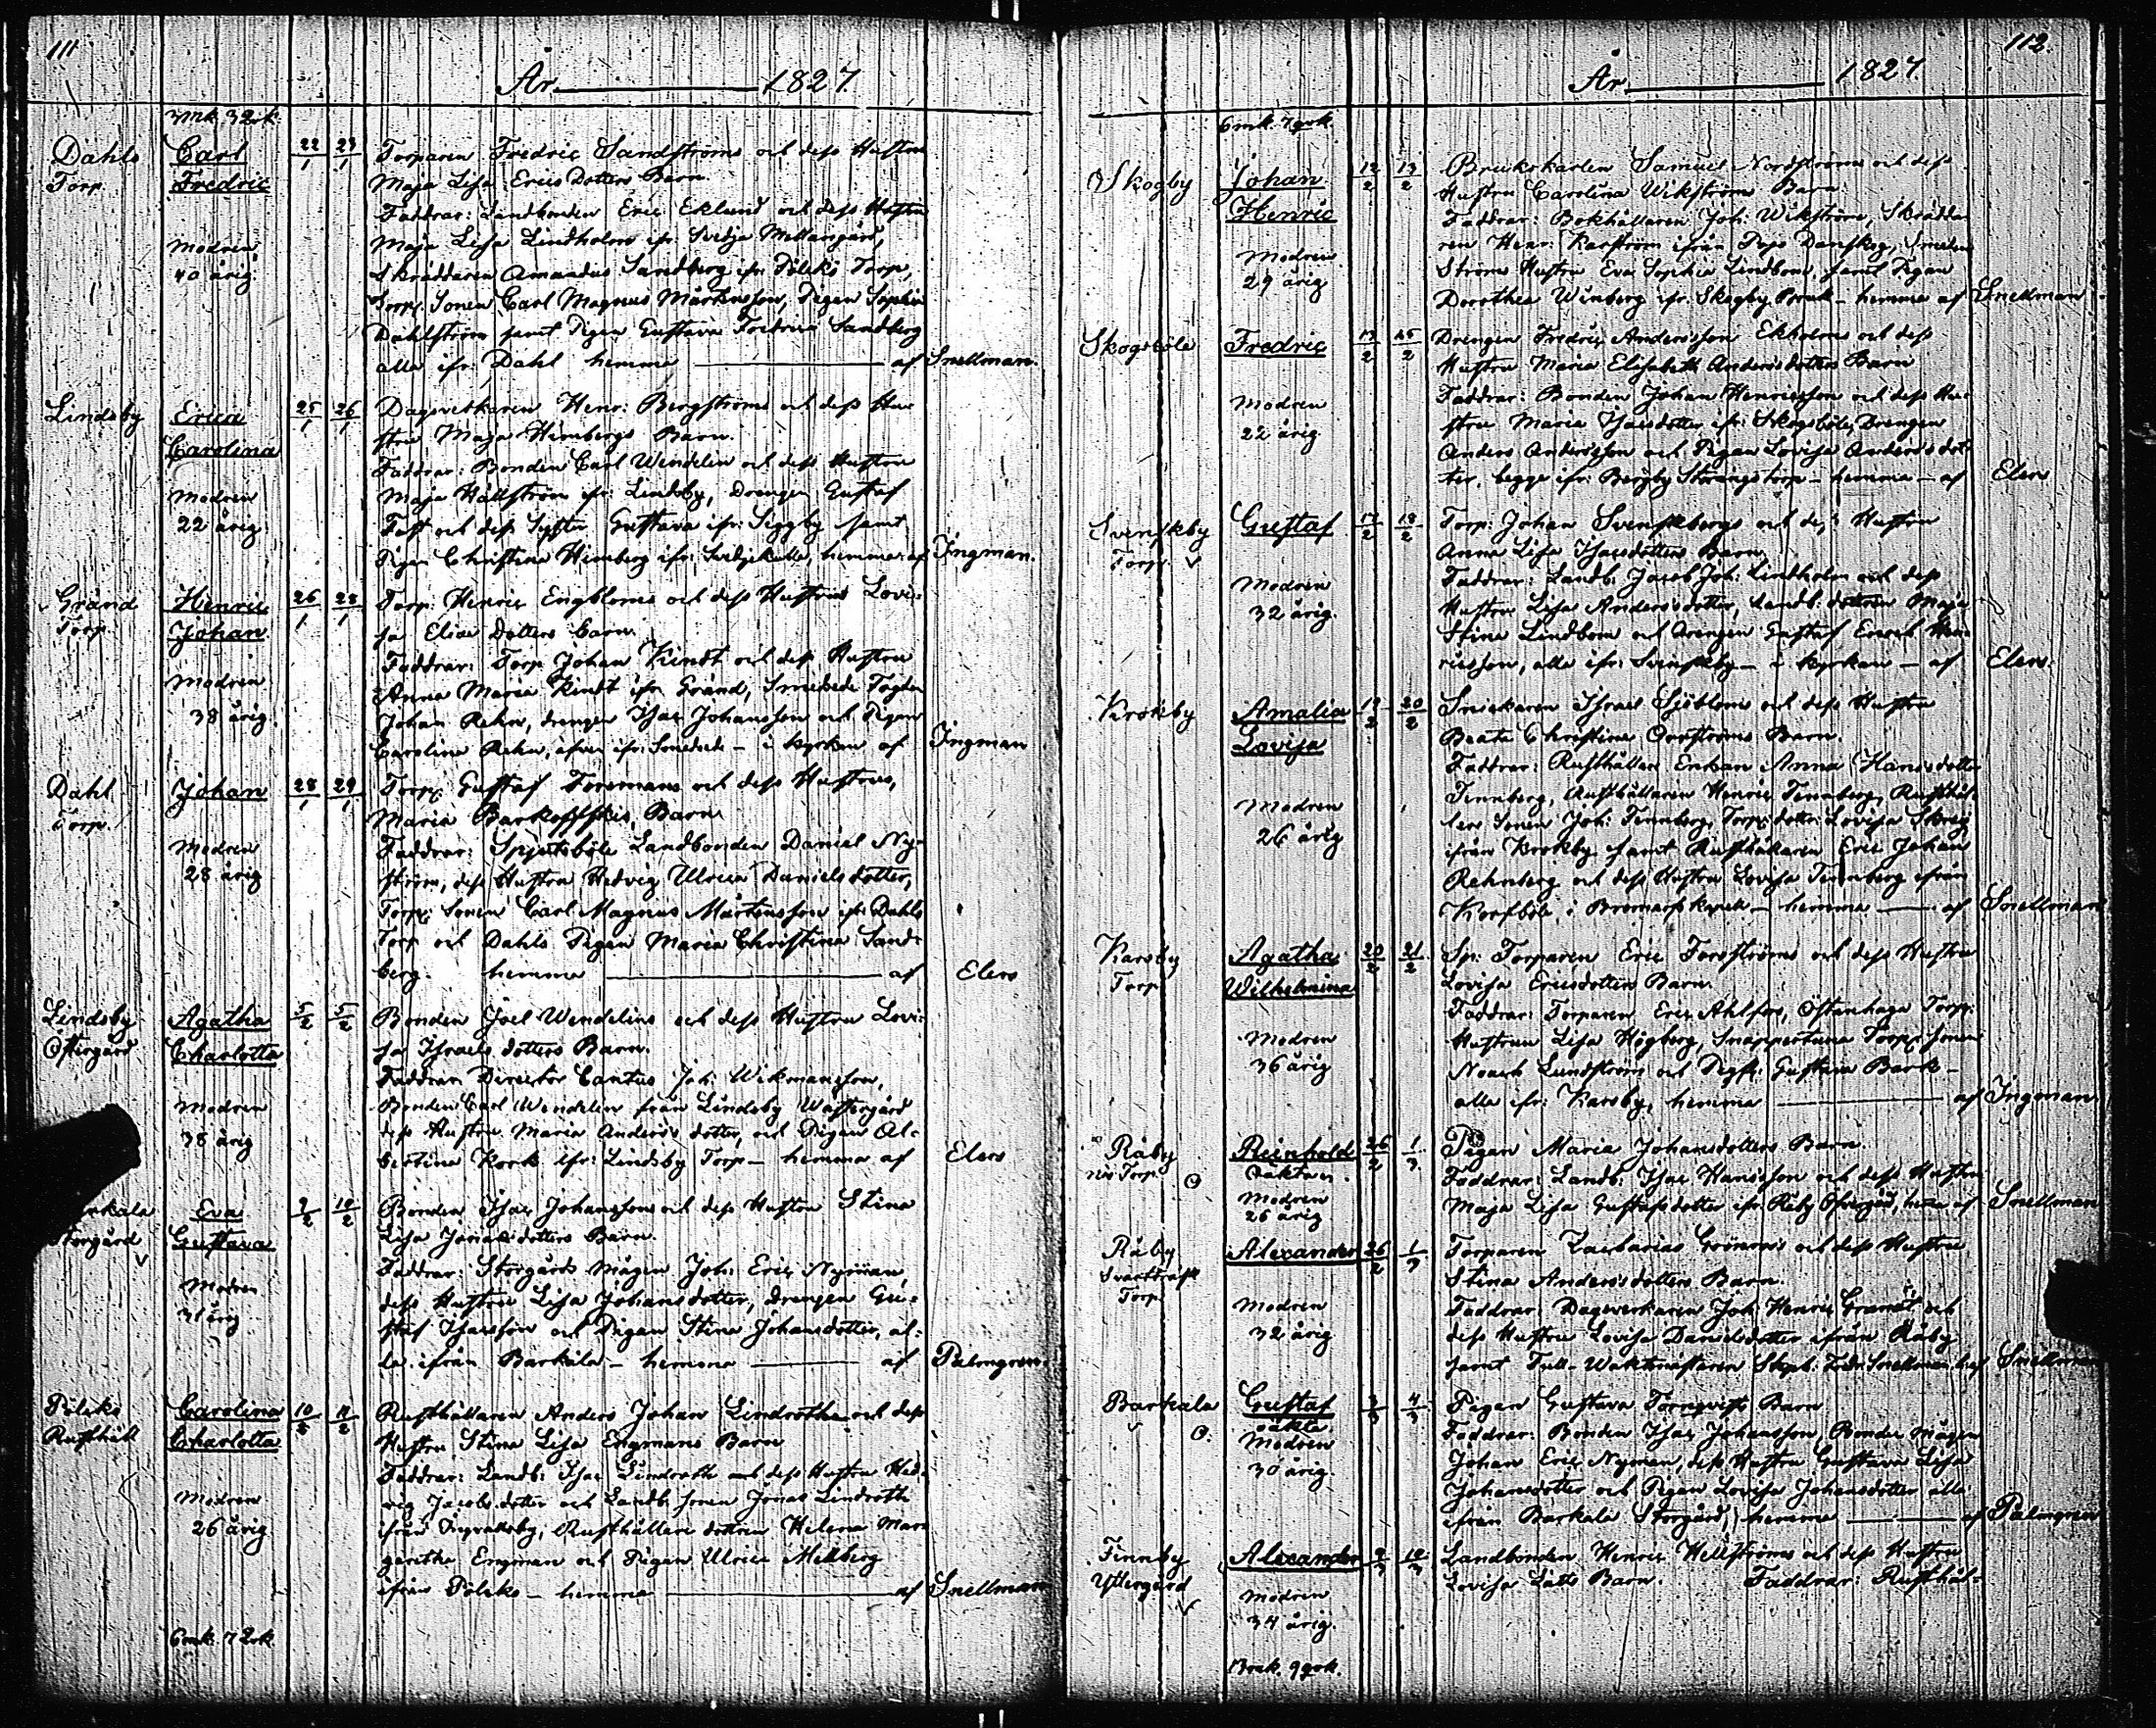 111
År 1827.
3mk. 32rk.
Dahls Carl 22/1 23/1 Torparen Fredric Sandströms och dess Hustrus
Torp Fredric Maja Lisa Ericsdotters Barn.
Faddrar: Landbonden Eric Eklund och dess Hustru
Modren Maja Lisa Lindholm ifr: Mellangård,
40 årig. Skräddaren Amandus Sandberg ifr. Pölsks Torp,
Torp. Sonen Carl Magnus Mårtensson, Pigan Sophia
Dahlström samt Pigan Gustava Fredrica Sandberg
alla ifr: Dahl hemma af Snellman.
Lindsby Erica 25/1 26/1 Dagsverkaren Henr: Bergströms och dess Hu-
Carolina stru Maja Himbergs Barn.
Faddrar: Bonden Carl Wendelin och dess Hustru
Modren Maja Hällström ifr: Lindsby, Drengen Gustaf
22 årig och dess Syster Gustava ifr: Seggby samt
Pigan Christina Himberg ifr: hemma af Ingman.
Gränd Henric 26/1 28/1 Torp: Henric Engbloms och dess Hustrus Lovi-
Torp Johan sa Eliaedotters barn.
Faddrar: Torp. Johan Kindt och dess Hustru
Modren Anna Maria Kindt ifr Gränd, Smedede
38 årig. Johan Rehn, drengen Isac Johansson och Pigan
Carolina Rehn, äfven ifr: Smedede - i kyrkan af Ingman
Dahl Johan 28/1 29/1 Torp. Gustaf Forsmans och dess Hustrus,
Torp. Maria Barkoffskis, Barn.
Modren Faddrar: Spjutsböle Landbonden Daniel Ny-
28 årig ström, dess Hustru Hedvig Ulrica Danielsdotter,
Torp: Sonen Carl Magnus Mårtensson ifr: Dahls
Torp och Dahls Pigan Maria Christina Sand-
berg. hemma af Elers
Lindsby Agatha 5/2 5/2 Bonden Joel Wendelins och dess Hustru Lovi-
Östergård Charlotta sa Israels dotters Barn.
Faddrar: Director Cantus Joh: Wikmansson,
Modren Bonden Carl Wendelin från Lindsby Wästergård
38 årig dess Hustru Maria Anders dotter, och Pigan Al-
bertina Kock ifr: Lindsby Torp - hemma af Elers
rkala Eva 9/2 10/2 Bonden Isac Johanssons och dess Hustru Stina
Storgård Gustava Lisa Jonaedotters Barn.
Faddrar: Storgårds mågen Joh: Eric Nyman,
Modren dess Hustru Lisa Johansdotter, drengen Gu-
31 årig staf Isacsson och Pigan Stina Johansdotter, al-
la ifrån Barkala - hemma af Palmgren.
Pölsks Carolina 10/2 11/2 Rusthållaren Anders Johan Lindroths och dess
Rusthåll Charlotta Hustru Stina Lisa Engmans Barn
Faddrar: Landb: Isac Lindroth och dess Hustru Hed-
Modren vig Jacobsdotter och Landb: sonen Jonas Lindroth
26 årig ifrån Ingvaldsby, Rusthållare dottren Helena Mar-
garetha Engman och Pigan Ulrica Mellberg
ifrån Pölsks - hemma af Snellman
6mk. 72rk
112.
År 1827
6mk. 79rk.
Skogby Johan 12/2 13/2 Brukskarlen Samuel Nordströms och dess
Henric Hustru Carolina Wikström Barn.
Faddrar: Bokhållaren Joh: Wikström, Skrädda-
Modren ren Henr: Karström ifrån Pojo Danskog, Smeden
29 årig Ströms Hustru Eva Sophia Lindbom, samt Pigan
Dorothea Winberg ifr. Skogby Bruk - hemma af Snellman
Skogsböle Fredric 13/2 15/2 Drengen Fredric Andersson Ekholms och dess
Hustru Maria Elisabeth Andersdotters Barn
Modren Faddrar: Bonden Johan Henricsson och dess Hu-
22 årig. stru Maria Isacsdotter ifr: Skogsböle, Drengen
Anders Andersson och Pigan Lovisa Andersdot-
ter, begge ifr: Bergby Storängstorp - hemma - af Elers
Svenskby Gustaf 17/2 18/2 Torp: Johan Svenskbergs och dess Hustru
Torp Anna Lisa Isacsdotters Barn.
Modren Faddrar: Landb: Jacob Joh: Lindholm och dess
32 årig. Hustru Lisa Andersdotter, Landb: dottren Maja
Stina Lindbom och drengen Gustaf Hen-
ricsson, alla ifr: Svenskby - i kyrkan - af Elers.
Krokby Amalia 19/2 20/2 Snickaren Israel Sjöbloms och dess Hustru
Lovisa Beata Christina Barn.
Faddrar: Rusthållare Enkan Anna Hansdotter
Modren Tennberg, Rusthållaren Henric Tennberg, Rusthål-
26 årig lare Sonen Joh: Tennberg, Torp: dotter Lovisa
ifrån Krokby samt Rusthållaren Eric Johan
Rehnberg och dess Hustru Lovisa Tennberg ifrån
i Bromarf - hemma af Snellman
Karsby Agatha 20/2 21/2 Torparen Eric Forsströms och dess Hustru
Torp Wilhelmina Lovisa Ericsdotters Barn.
Faddrar: Torparen Eric Ahlfors, Östanhaga Torp:
Modren Hustrun Lisa Högberg, Snappertuna Torp: sonen
36 årig Noach Lundström och Pigan Gustava Bark -
alla ifr: Karsby, hemma af Ingman
Råby Reinhold 26/2 1/3 Pigan Maria Johansdotters Barn.
Torp oäkta. Faddrar: Landb: Isac Hansson och dess Hustru
Modren Maja Lisa Gustafsdotter ifr: Råby hema af Snellman
26 årig
Råby Alexander 26/2 1/3 Torparen Zacharias Grönroos och dess Hustru
Torp Stina Andersdotters Barn.
Modren Faddrar: Dagsverkaren Joh: Henric och
32 årig dess Hustru Lovisa Danielsdotter ifrån Råby
samt Tull-Waktmästaren Snellman Snellman
Barkala Gustaf 3/3 4/3 Pigan Gustava Törnqvists Barn
oäkta. Faddrar: Bonden Isac Johansson, Bonde mågen
Modren Johan Eric Nyman, dess Hustru Gustava Lisa
30 årig. Johansdotter och Pigan Lovisa Johansdotter alla
ifrån Barkala Storgård, hemma af Palmgren
Finnby Alexander 9/3 10/3 Landbonden Henric Hellströms och dess Hustru
Yttergård Lovisa Lätts Barn. Faddrar: Rusthål-
Modren
34 årig.
13mk. 99rk.